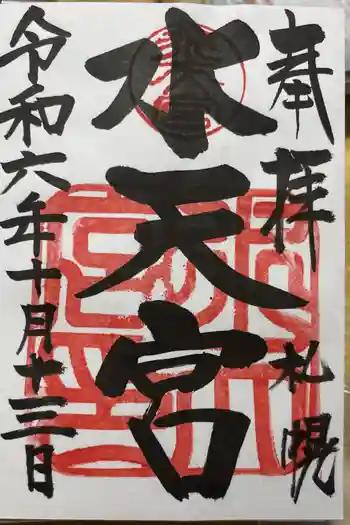 奉拝
札幌
水天宮
令和六年十月十三日